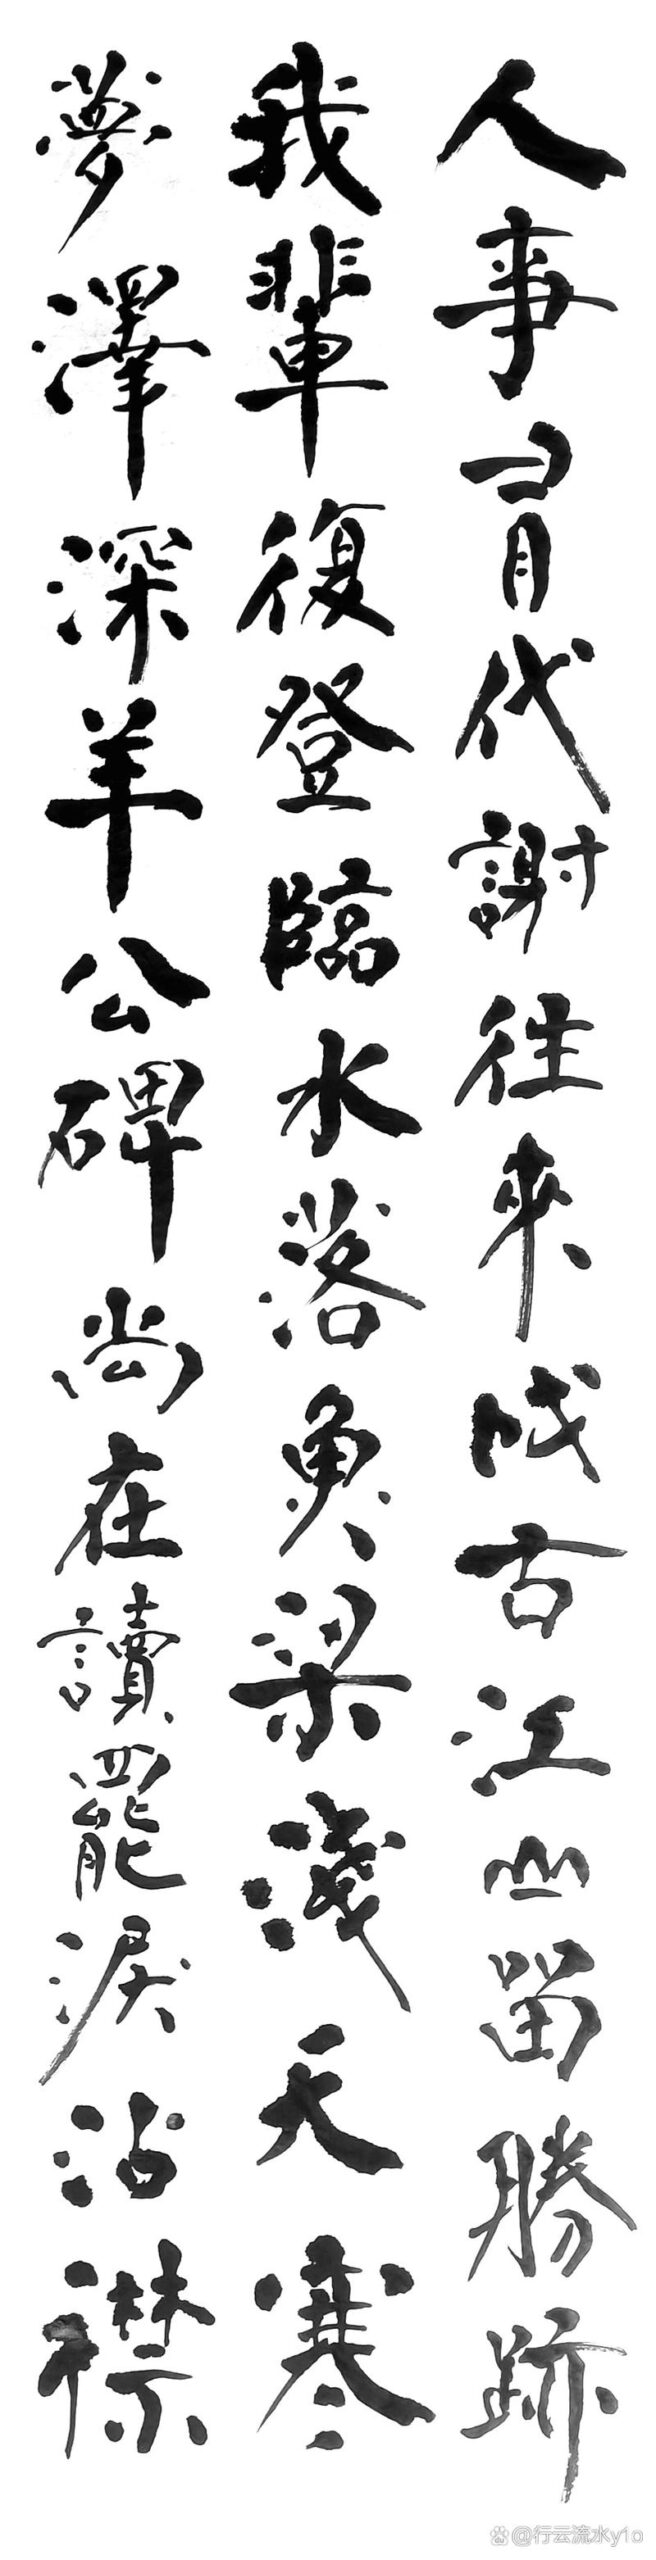 人事有代謝往來成古江山留勝跡
我輩復登臨水落魚梁淺天寒
夢澤深羊公碑尚在讀罷淚沾襟
@行云流水y1o